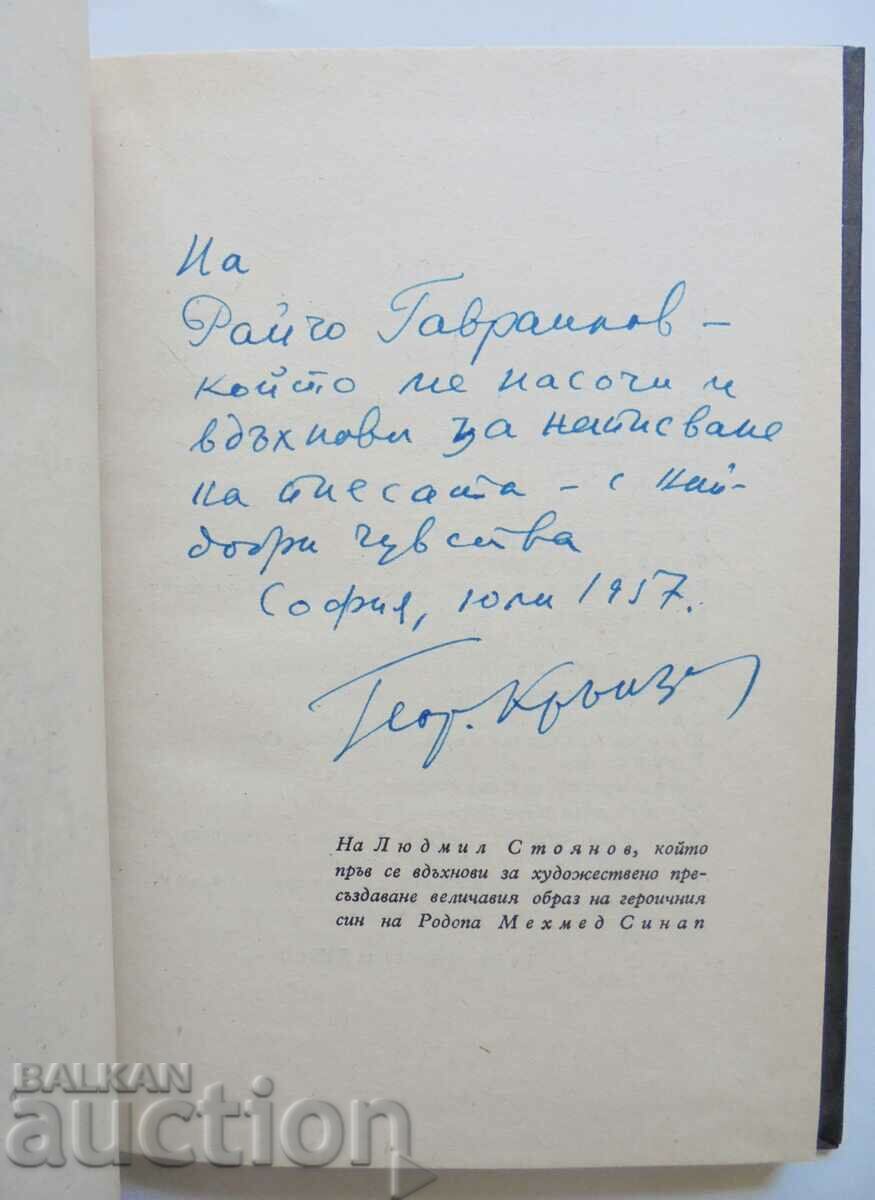 На
Райчо Гавраилов –
който ме насочи и
вдъхнови за написване
на пиесата – с най-
добри чувства
София, юли 1957.
Геор.
На Людмил Стоянов, който
пръв се вдъхнови за художествено пре-
създаване величавия образ на героичния
син на Родопа Мехмед Синап
BALKAN
auction